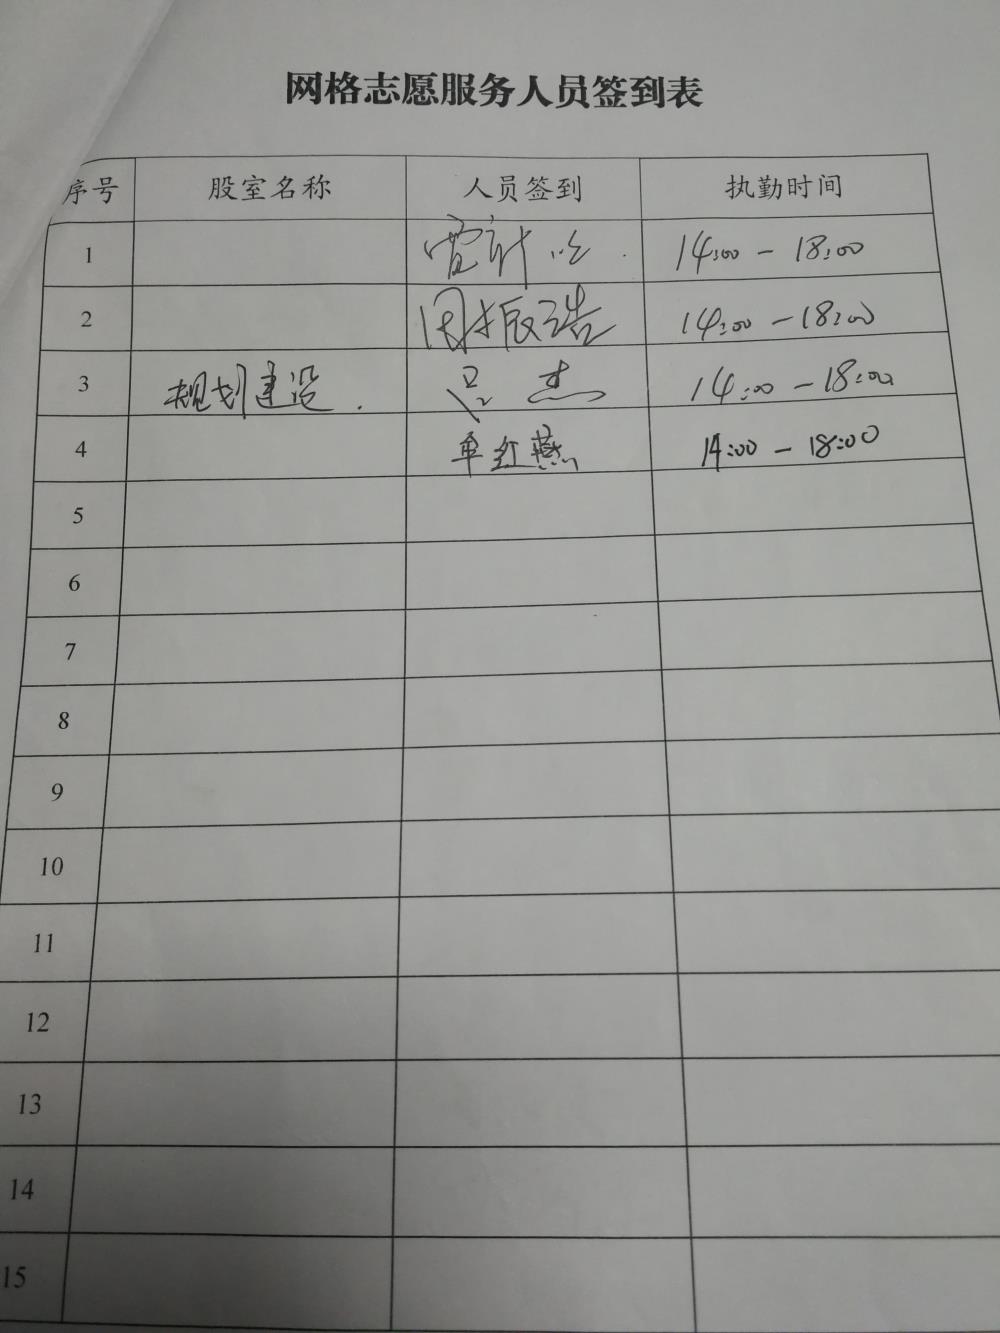 网格志愿服务人员签到表
序号 股室名称 人员签到 执勤时间
1 14:00 - 18:00
2 周振浩 14:00 - 18:00
3 规划建设. 吕杰 14:00 - 18:00
4 单红燕 14:00 - 18:00
5
6
7
8
9
10
11
12
13
14
15